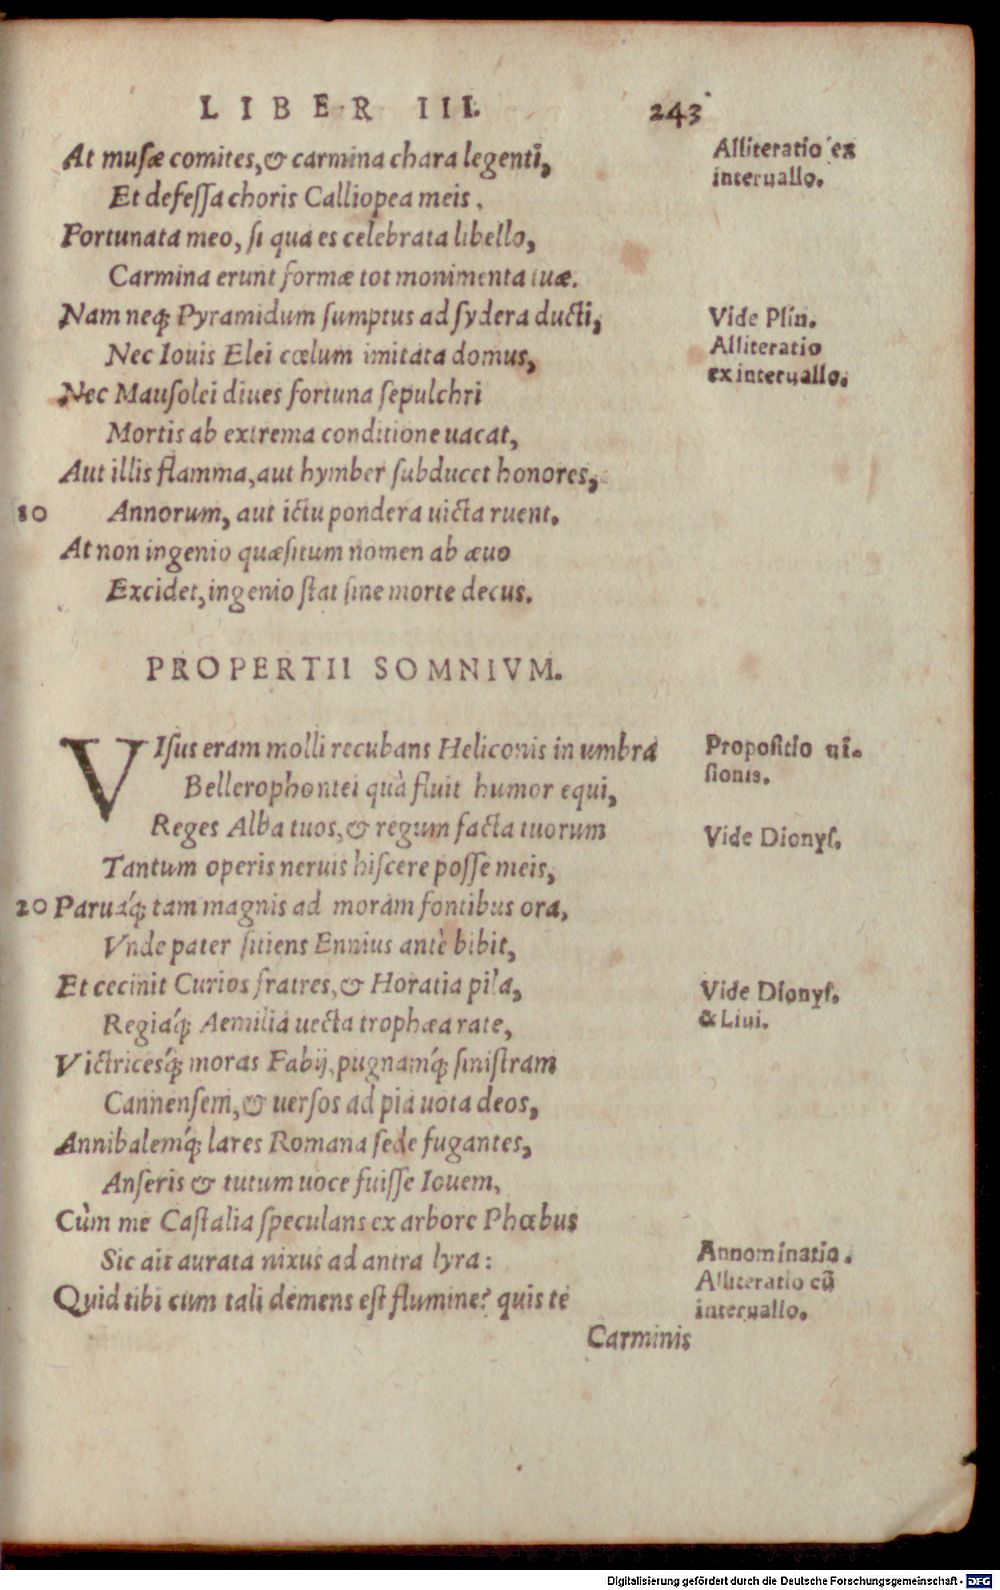 LIBER III. 243
At musæ comites, & carmina chara legenti,
Et defessa choris Calliopea meis.
Fortunata meo, si qua es celebrata libello,
Carmina erunt formæ tot monimenta tuæ.
Nam neq; Pyramidum sumptus ad sydera ducti,
Nec Iouis Elei cœlum imitata domus,
Nec Mausolei diues fortuna sepulchri
Mortis ab extrema conditione uacat,
Aut illis flamma, aut hymber subducet honores,
10 Annorum, aut ictu pondera uicta ruent.
At non ingenio quæsitum nomen ab æuo
Excidet, ingenio stat sine morte decus.
Alliteratio ex
interuallo.
Vide Plin.
Alliteratio
ex interuallo.
PROPERTII SOMNIVM.
VIsus eram molli recubans Heliconis in umbra
Bellerophontei quà fluit humor equi,
Reges Alba tuos, & regum facta tuorum
Tantum operis neruis hiscere posse meis,
20 Paruaq́; tam magnis ad moram fontibus ora,
Vnde pater sitiens Ennius antè bibit,
Et cecinit Curios fratres, & Horatia pila,
Regiaq́; Aemilia uecta trophæa rate,
Victricesq́; moras Fabij, pugnamq́; sinistram
Cannensem, & uersos ad pia uota deos,
Annibalemq́; lares Romana sede fugantes,
Anseris & tutum uoce fuisse Iouem,
Cùm me Castalia speculans ex arbore Phœbus
Sic ait aurata nixus ad antra lyra:
Quid tibi cum tali demens est flumine? quis te
Carminis
Propositio ui-
sionis.
Vide Dionys.
Vide Dionys.
& Liui.
Annominatio.
Alliteratio cũ
interuallo.
Digitalisierung gefördert durch die Deutsche Forschungsgemeinschaft - DFG